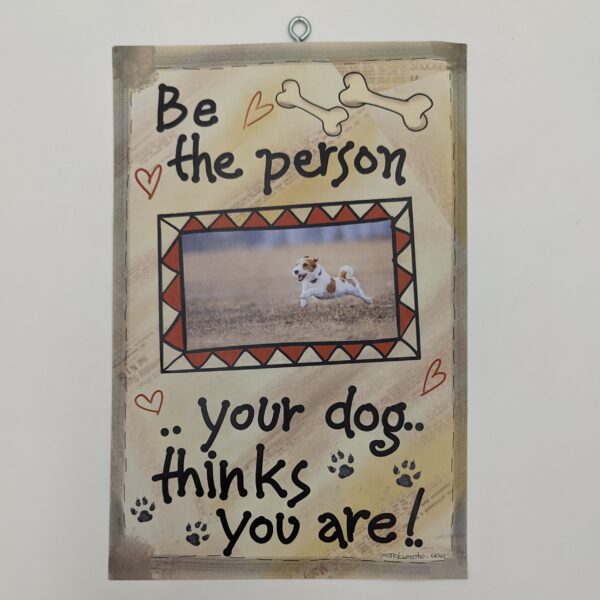 Be
the person
.. your dog..
thinks
you are!